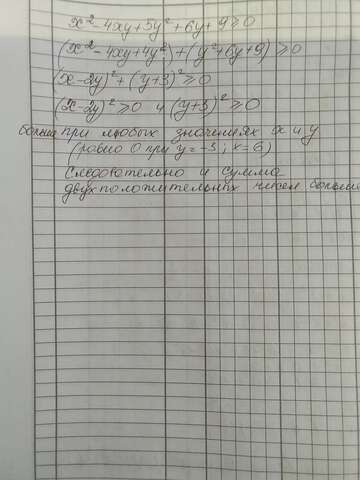 x² - 4xy + 5y² + 6y + 9 ≥ 0
(x² - 4xy + 4y²) + (y² + 6y + 9) ≥ 0
(x - 2y)² + (y + 3)² ≥ 0
(x - 2y)² ≥ 0 и (y + 3)² ≥ 0
при любых значениях x и y
(равно 0 при y = -3; x = 6)
Следовательно и сумма
двух положительных чисел больше